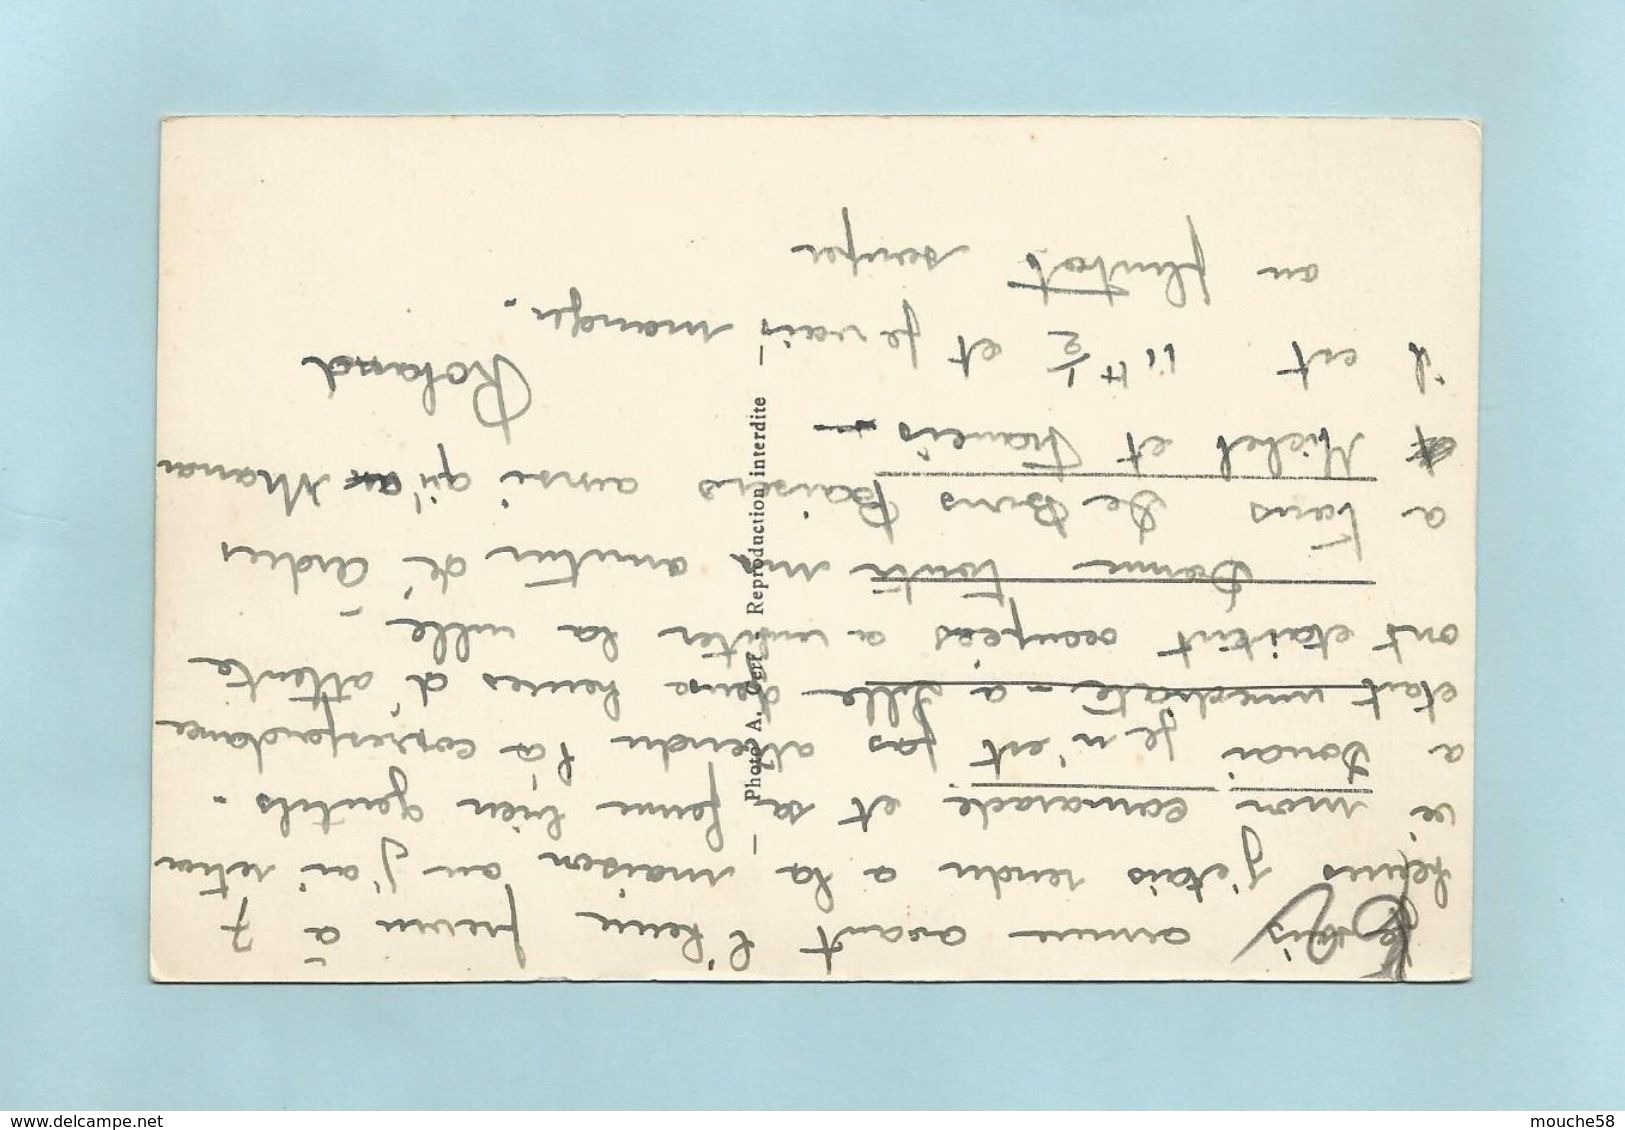 arrive avant l'heure prevu à 7
heures j'etais rendu a la maison ou j'ai retrou
vé mon camarade et sa femme bien gentils -
a Douai je n'est pas attendu la correspondance
etait imediate - a Lille deux heures d'attente
ont etaient occupées a visiter la ville -
Donne toute m'a amitier dé Ardres
a tous De Bons Baisers ainsi qu'a Maman
Michel et Francis -
il est 11 H 1/2 et je vais manger -
ou plutot souper
Roland
Photo A. Cerf. Reproduction interdite
delcampe.net
mouche58